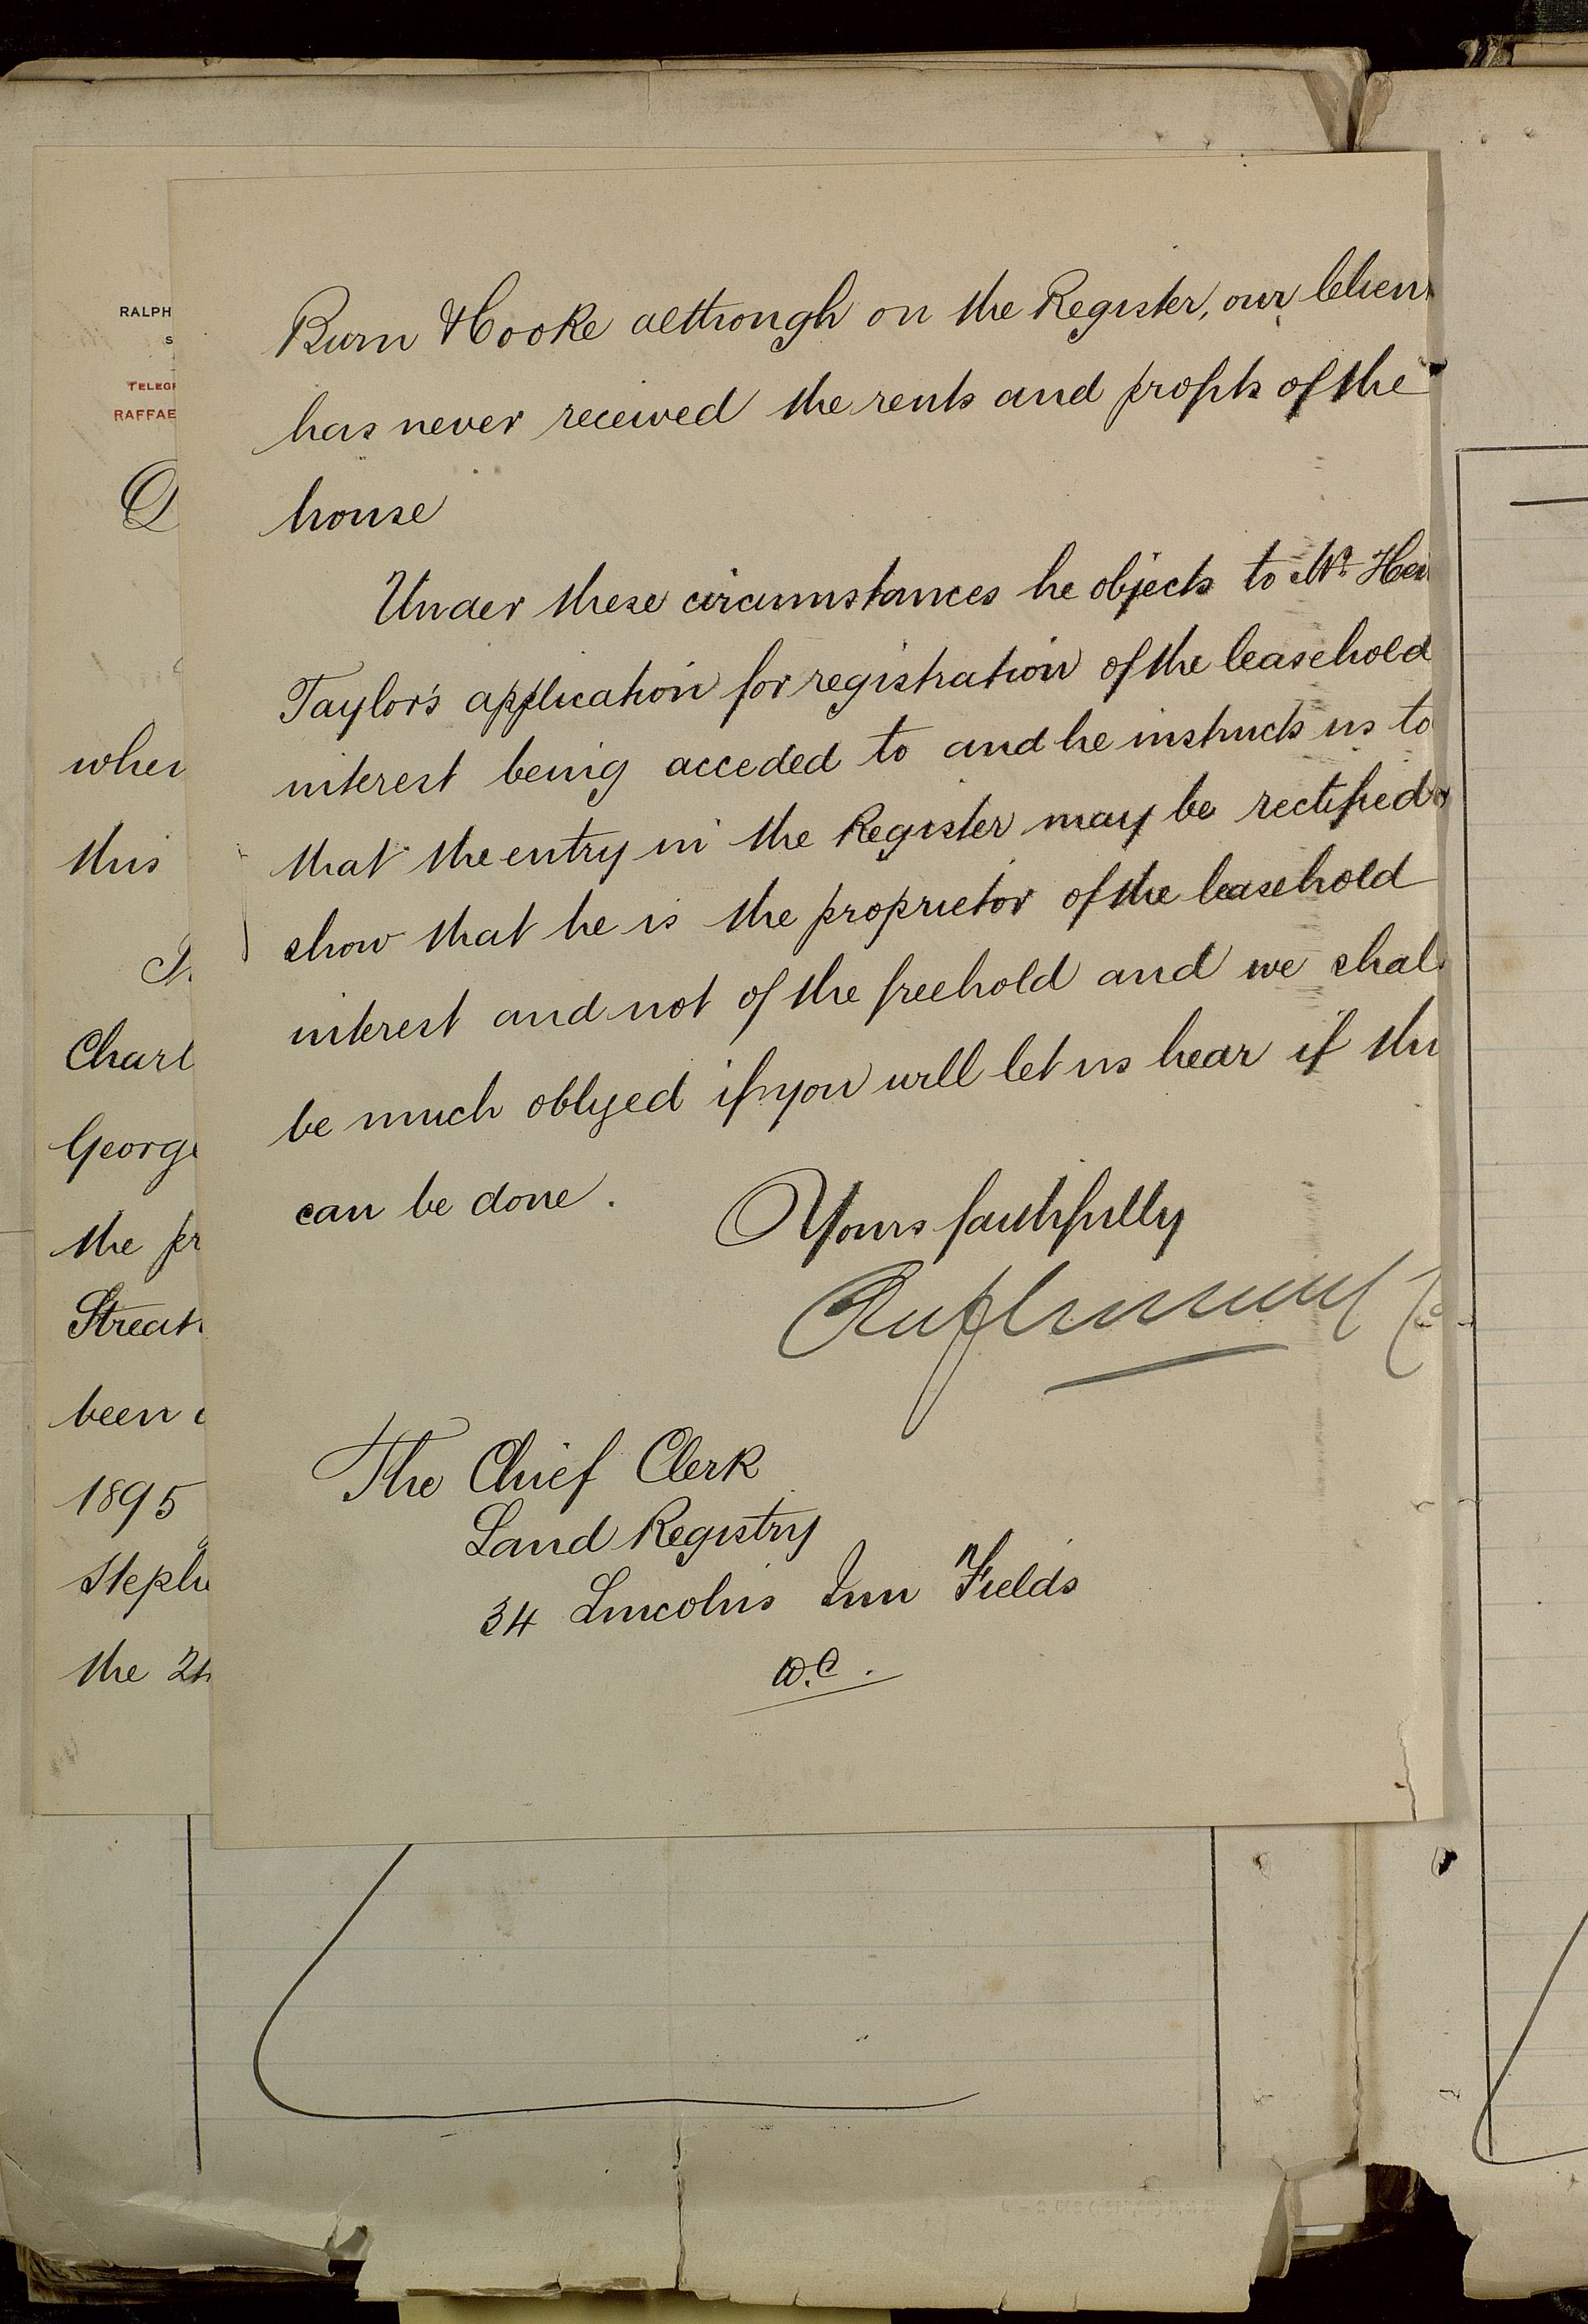 RALPH
S
TELEGR
RAFFAE
D
when
this
Th
Charl
George
the pr
Streat
been
1895
Steph
the 24
Burn Hooke although on the Register, our Client
has never received the rents and profits of the
house
Under these circumstances he objects to Mr. Hen
Taylor's application for registration of the leasehold
interest being acceded to and he instructs us to
that the entry in the Register may be rectified &
show that he is the proprietor of the leasehold
interest and not of the freehold and we shall
be much obliged if you will let us hear if this
can be done.
Yours faithfully
The Chief Clerk
Land Registry
34 Lincolns Inn Fields
W.C.